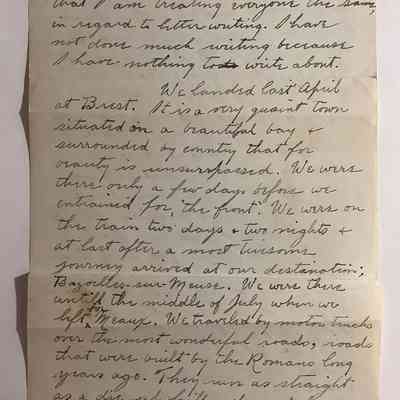 that I am treating everyone the same,
in regard to letter writing. I have
not done much writing because
I have nothing to write about.
We landed last April
at Brest. It is a very quaint town
situated on a beautiful bay &
surrounded by country that for
beauty is unsurpassed. We were
there only a few days before we
entrained for, "the front". We were on
the train two days & two nights &
at last after a most tiresome
journey arrived at our destination;
Bazoilles-sur-Meuse. We were there
until the middle of July when we
left Meaux. We traveled by motor trucks
over the most wonderful roads, roads
that were built by the Romans long
years ago. They run as straight
as a